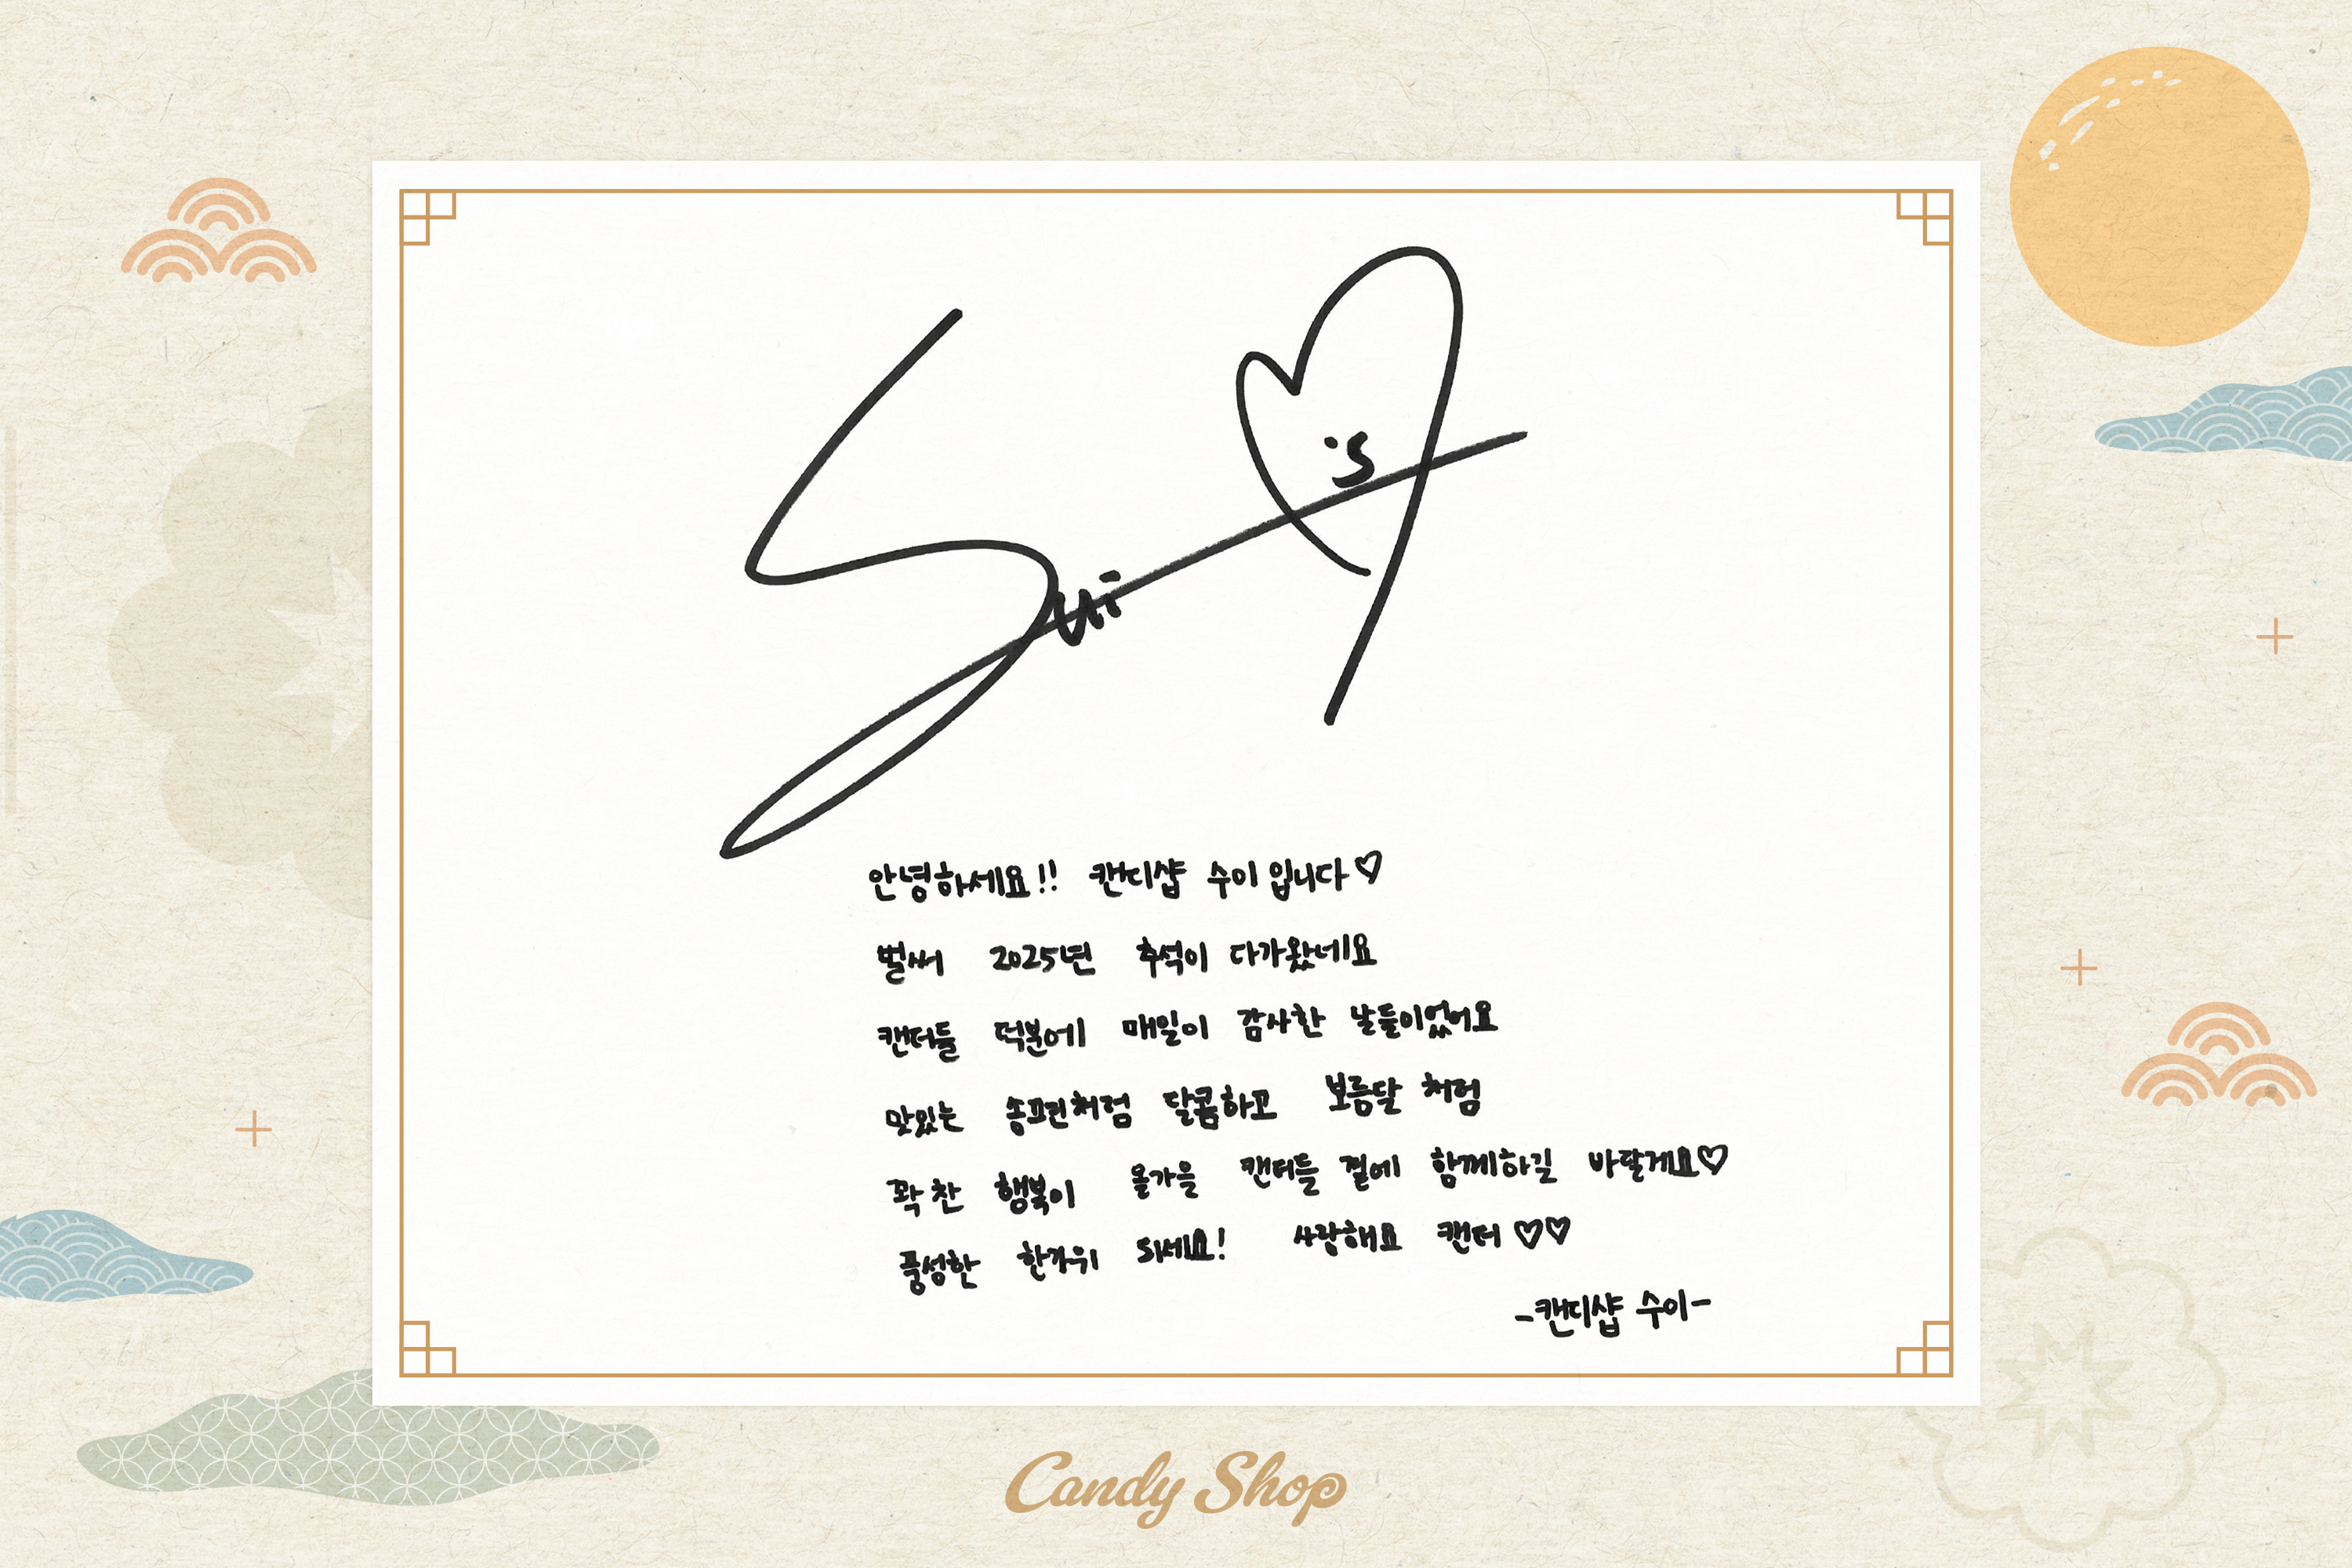 Sui
안녕하세요!! 캔디샵 수이 입니다♡
벌써 2025년 추석이 다가왔네요
캔더들 덕분에 매일이 감사한 날들이었어요
맛있는 송편처럼 달콤하고 보름달 처럼
꽉 찬 행복이 올가을 캔더들 곁에 함께하길 바랄게요♡
풍성한 한가위 되세요! 사랑해요 캔더♡♡
-캔디샵 수이-
Candy Shop